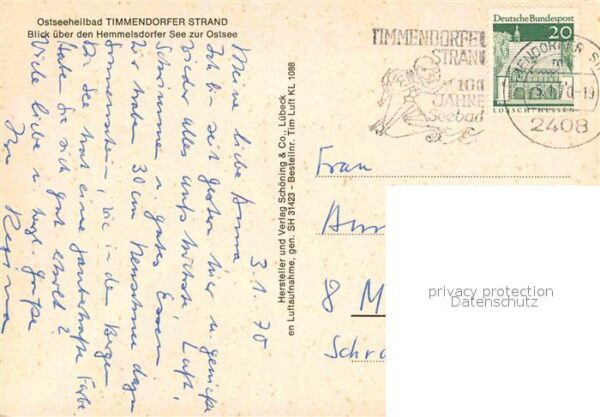 Ostseeheilbad TIMMENDORFER STRAND
Blick über den Hemmelsdorfer See zur Ostsee
3.1.70
Meine liebe Anna
Ich bin seit gestern hier u. genieße
wieder alles aufs höchste, Luft,
Schwimmen u. gutes Essen
Wir haben 30 cm Neuschnee dazu
Sonnenschein, wie in den Bergen
Die See hat eine zauberhafte Farbe
Haben Sie sich gut erholt?
Viele liebe u. herzl. Grüße
Ihre
Regina
Hersteller und Verlag Schöning & Co., Lübeck
en Luftaufnahme, gen. SH 31423 - Bestellnr. Tim Luft KL 1088
TIMMENDORFER
STRAND
100
JAHRE
Seebad
Deutsche Bundespost
20
LORSCH/HESSEN
MENDORFER ST
70-19
2408
Frau
8 M
Schr
privacy protection
Datenschutz